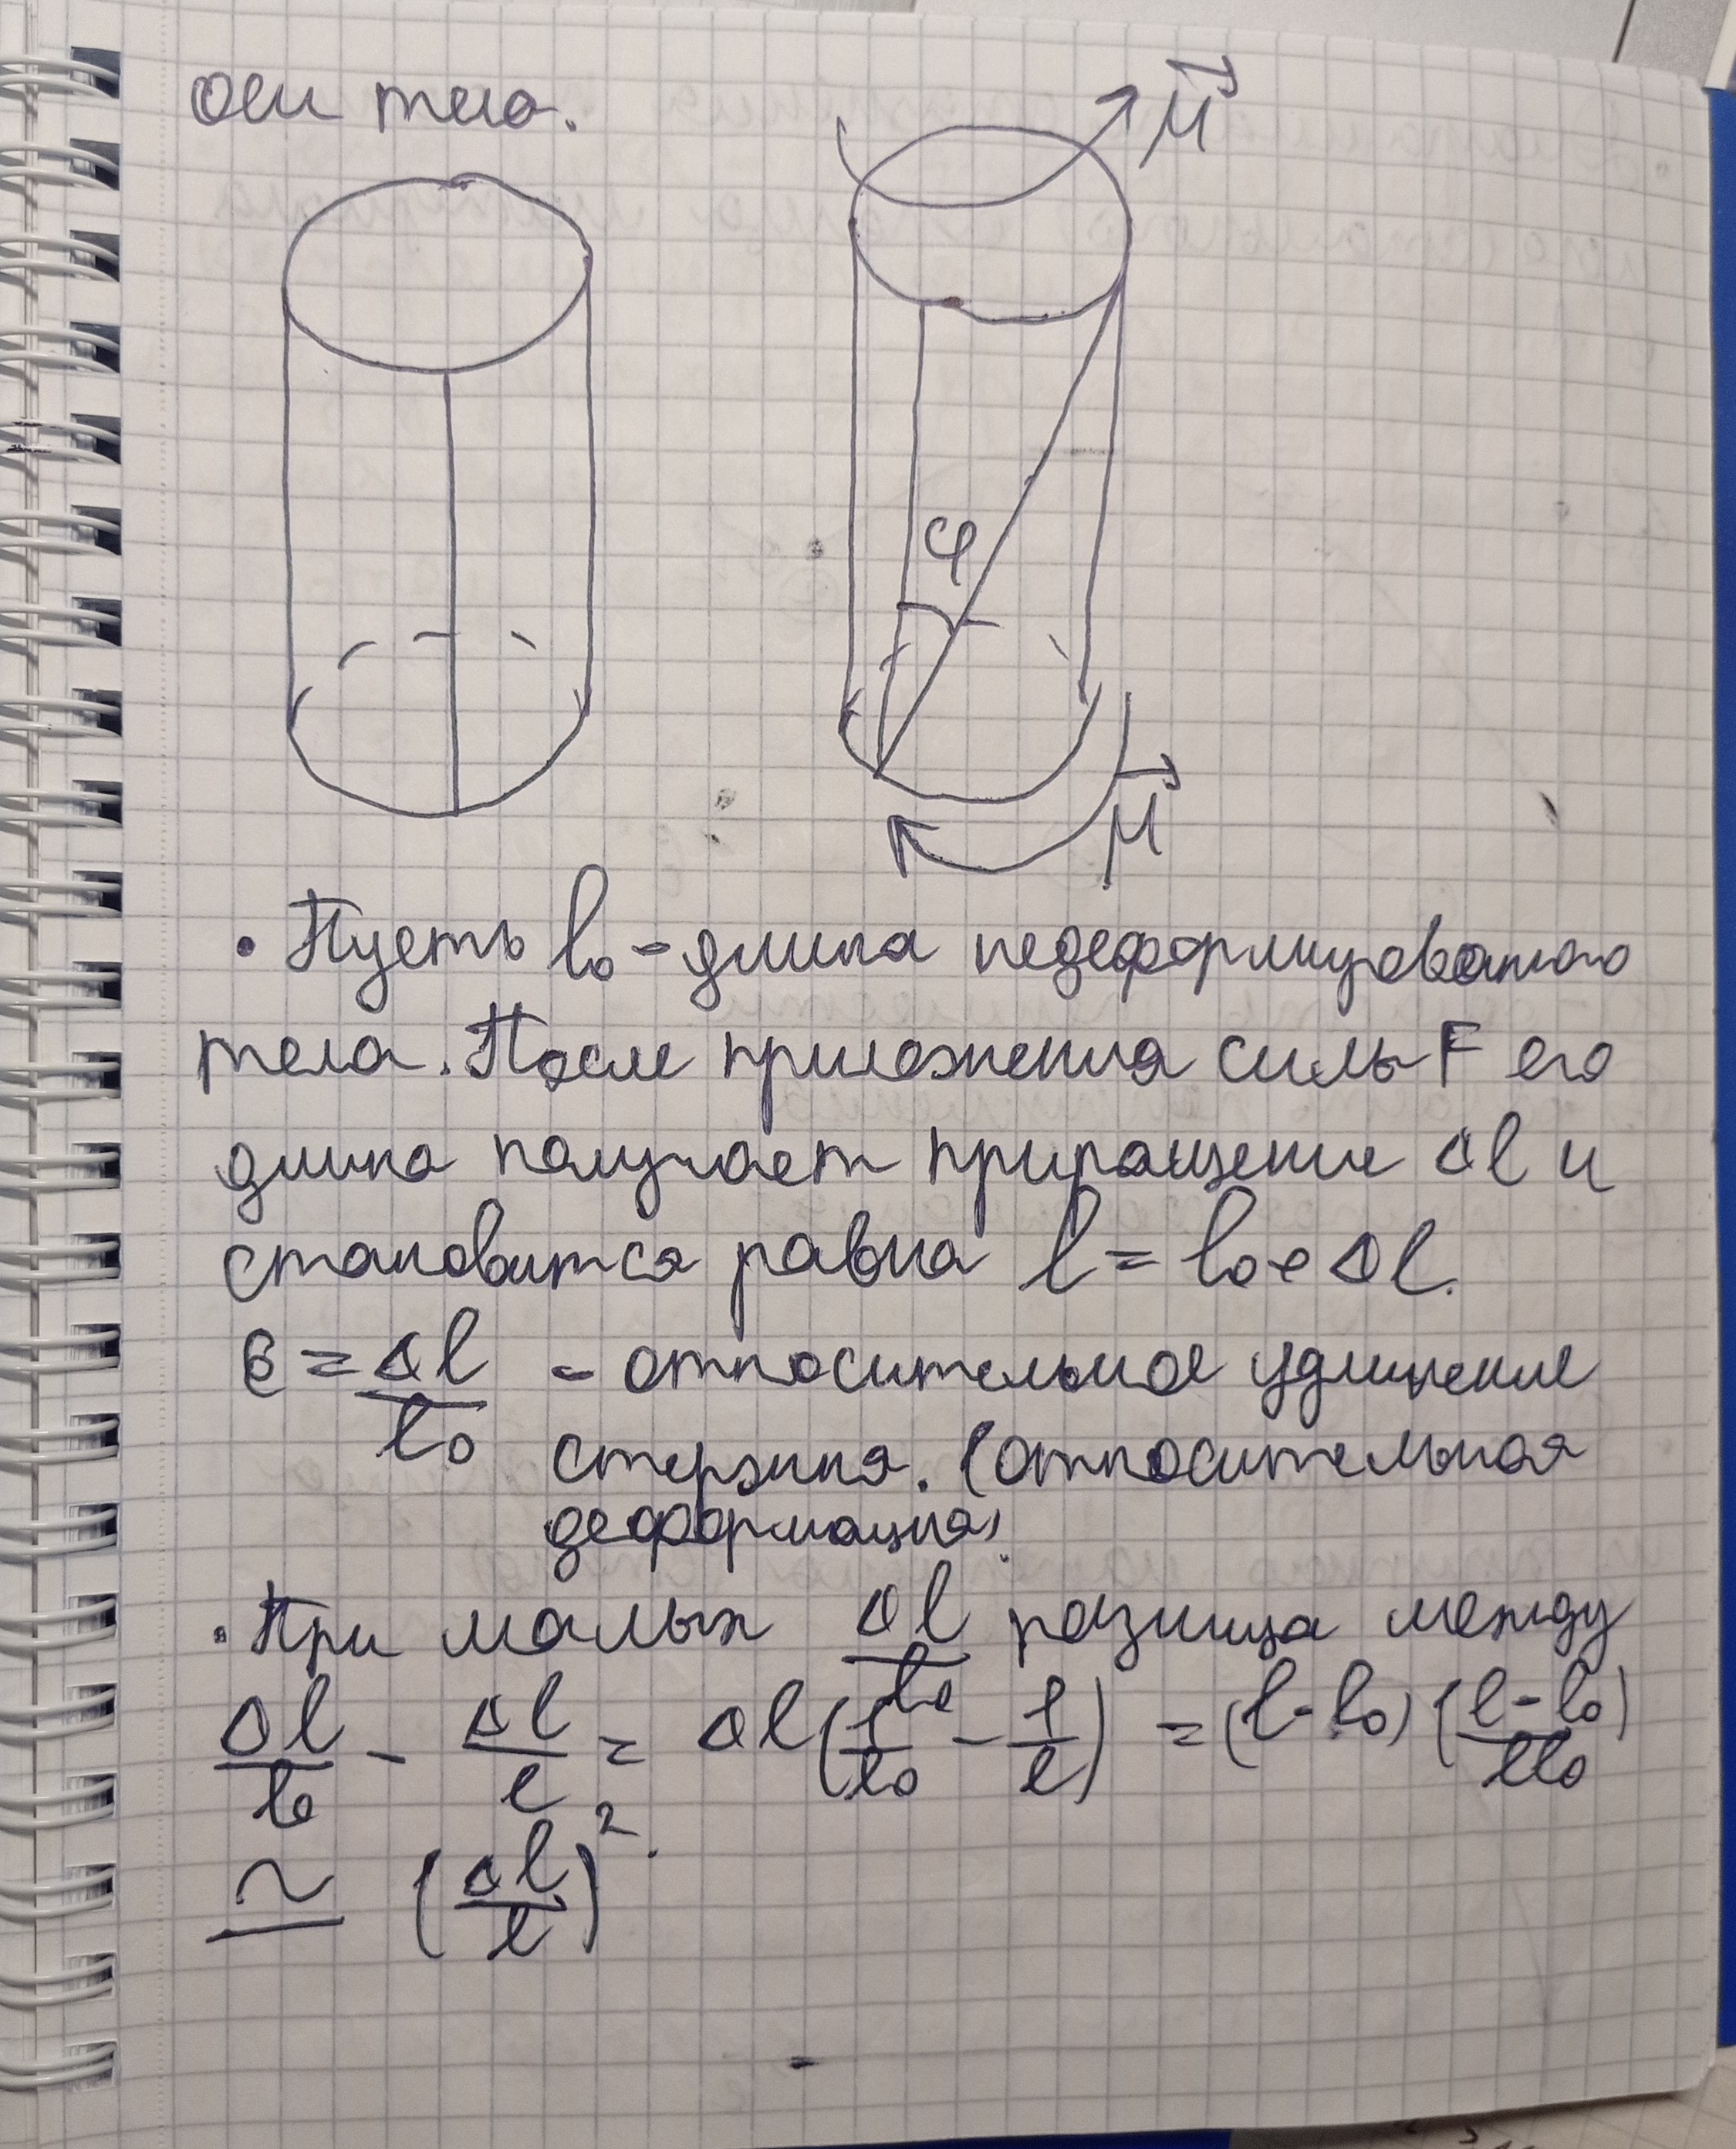 оси тела.
M⃗
φ
M⃗
• Пусть l₀ - длина недеформированного
тела. После приложения силы F его
длина получает приращение Δl и
становится равна l = l₀ + Δl.
ε = Δl/l₀ - относительное удлинение
стержня. (относительная
деформация)
• При малых Δl/l₀ разница между
Δl/l₀ - Δl/l = Δl(1/l₀ - 1/l) = (l - l₀)((l - l₀)/(ll₀))
≃ (Δl/l)².